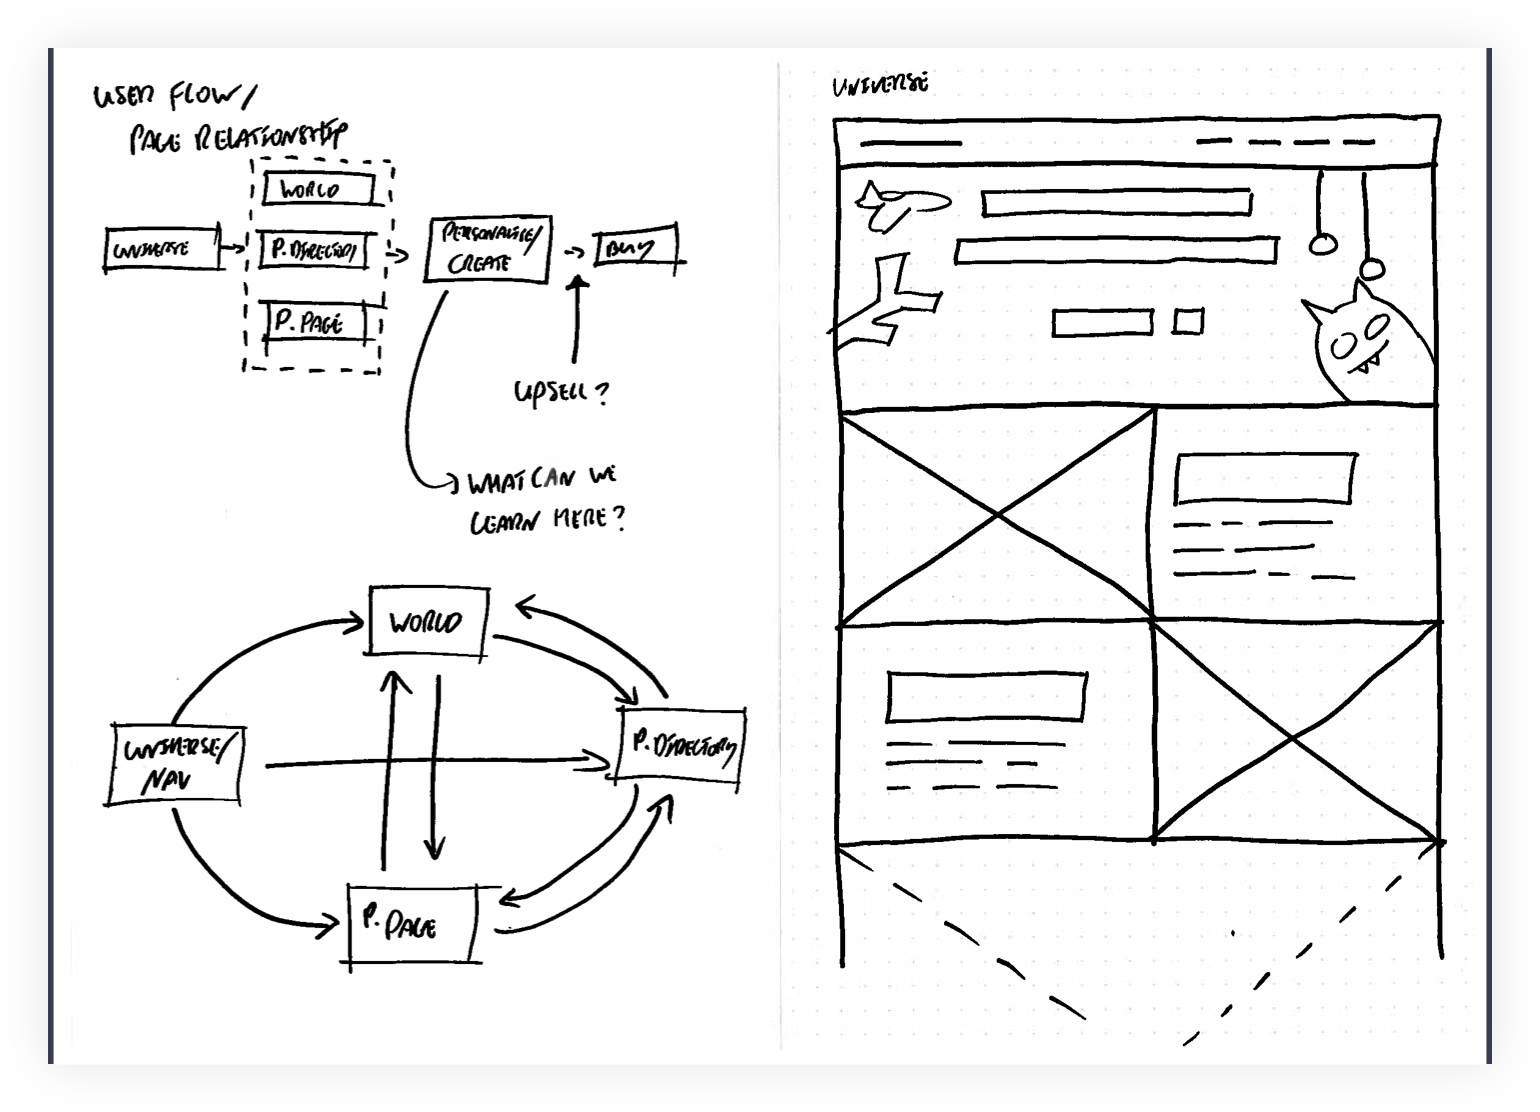 USER FLOW/
PAGE RELATIONSHIP
WORLD
UNIVERSE
P. DIRECTORY
P. PAGE
PERSONALISE/
CREATE
BUY
UPSELL?
WHAT CAN WE
LEARN HERE?
WORLD
UNIVERSE/
NAV
P. DIRECTORY
P. PAGE
UNIVERSE